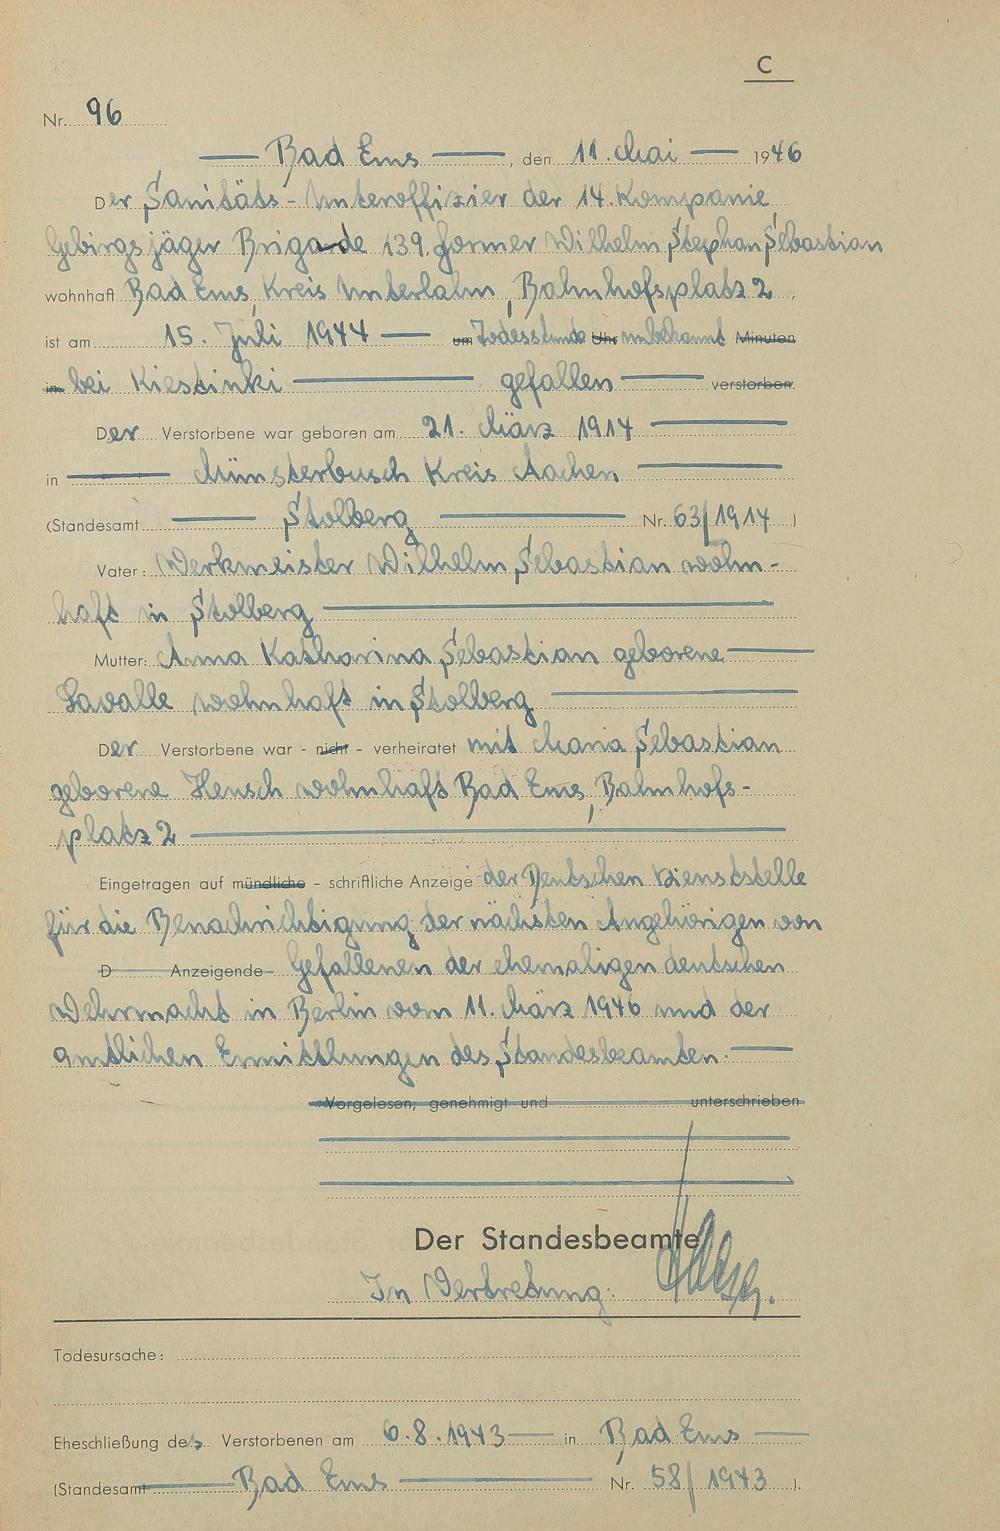 C
Nr. 96
Bad Ems, den 11. Mai 1946
Der Sanitäts-Unteroffizier der 14. Kompanie
Gebirgsjäger Brigade 139, Former Wilhelm Stephan Sebastian
wohnhaft Bad Ems, Kreis Unterlahn, Bahnhofsplatz 2,
ist am 15. Juli 1944 um Todesstunde Uhr unbekannt Minuten
in bei Kiestinki gefallen verstorben.
Der Verstorbene war geboren am 21. März 1914
in Münsterbusch Kreis Aachen
(Standesamt Stolberg Nr. 63/1914)
Vater: Werkmeister Wilhelm Sebastian wohn-
haft in Stolberg
Mutter: Anna Katharina Sebastian geborene
Lavalle wohnhaft in Stolberg
Der Verstorbene war - nicht - verheiratet mit Maria Sebastian
geborene Hensch wohnhaft Bad Ems, Bahnhofs-
platz 2
Eingetragen auf mündliche - schriftliche Anzeige der Deutschen Dienststelle
für die Benachrichtigung der nächsten Angehörigen von
D Anzeigende Gefallenen der ehemaligen deutschen
Wehrmacht in Berlin vom 11. März 1946 und der
amtlichen Ermittlungen des Standesbeamten.
Vorgelesen, genehmigt und unterschrieben
Der Standesbeamte
In Vertretung:
Todesursache:
Eheschließung des Verstorbenen am 6.8.1943 in Bad Ems
(Standesamt Bad Ems Nr. 58/1943).